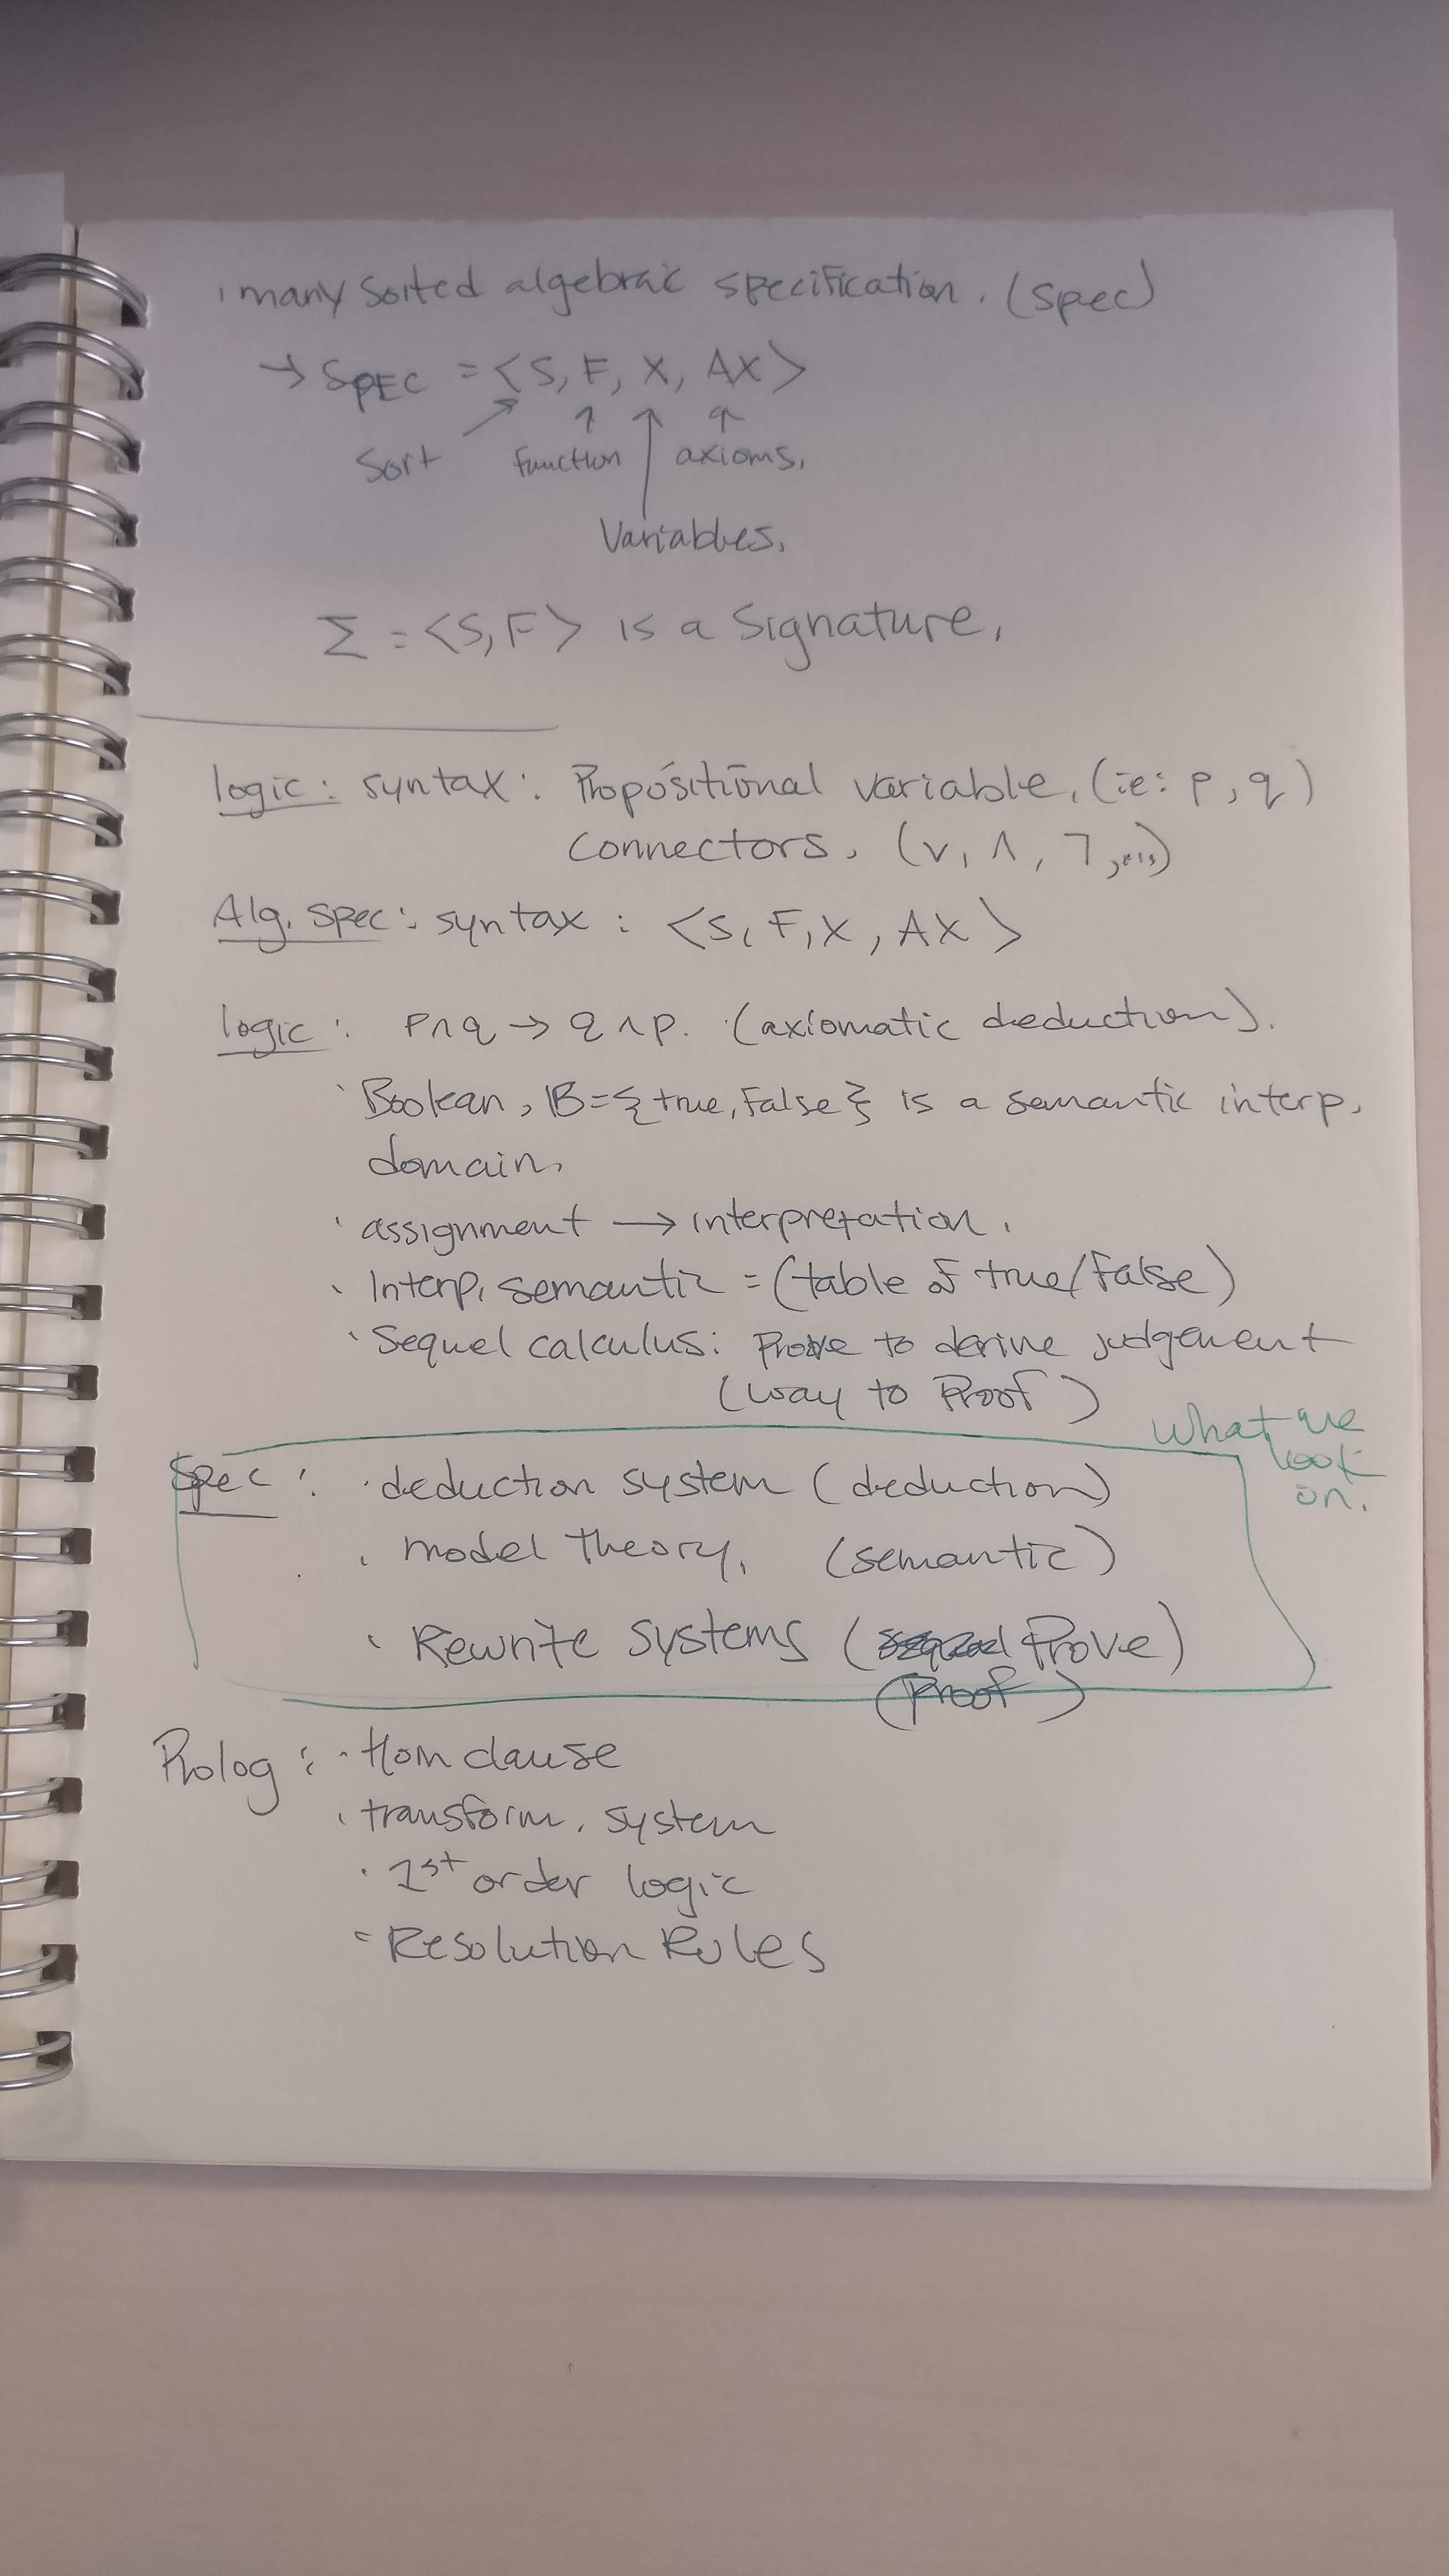 · many sorted algebraic specification. (spec)
→ SPEC = <S, F, X, AX>
Sort function axioms.
Variables.
Σ = <S, F> is a Signature.
logic: syntax: Propositional variable, (ie: p, q)
Connectors. (∨, ∧, ¬, ...)
Alg. spec: syntax: <S, F, X, AX>
logic: P∧q → q∧p. (axiomatic deduction).
· Boolean, 𝔹={true, False} is a semantic interp.
domain.
· assignment → interpretation.
· Interp. semantic = (table of true/False)
· Sequel calculus: Prove to derive judgement
(way to Proof)
What we
look
on.
Spec: · deduction system (deduction)
· model theory. (semantic)
· Rewrite systems (Prove)
(Proof)
Prolog: · Horn clause
· transform. system
· 1st order logic
- Resolution Rules